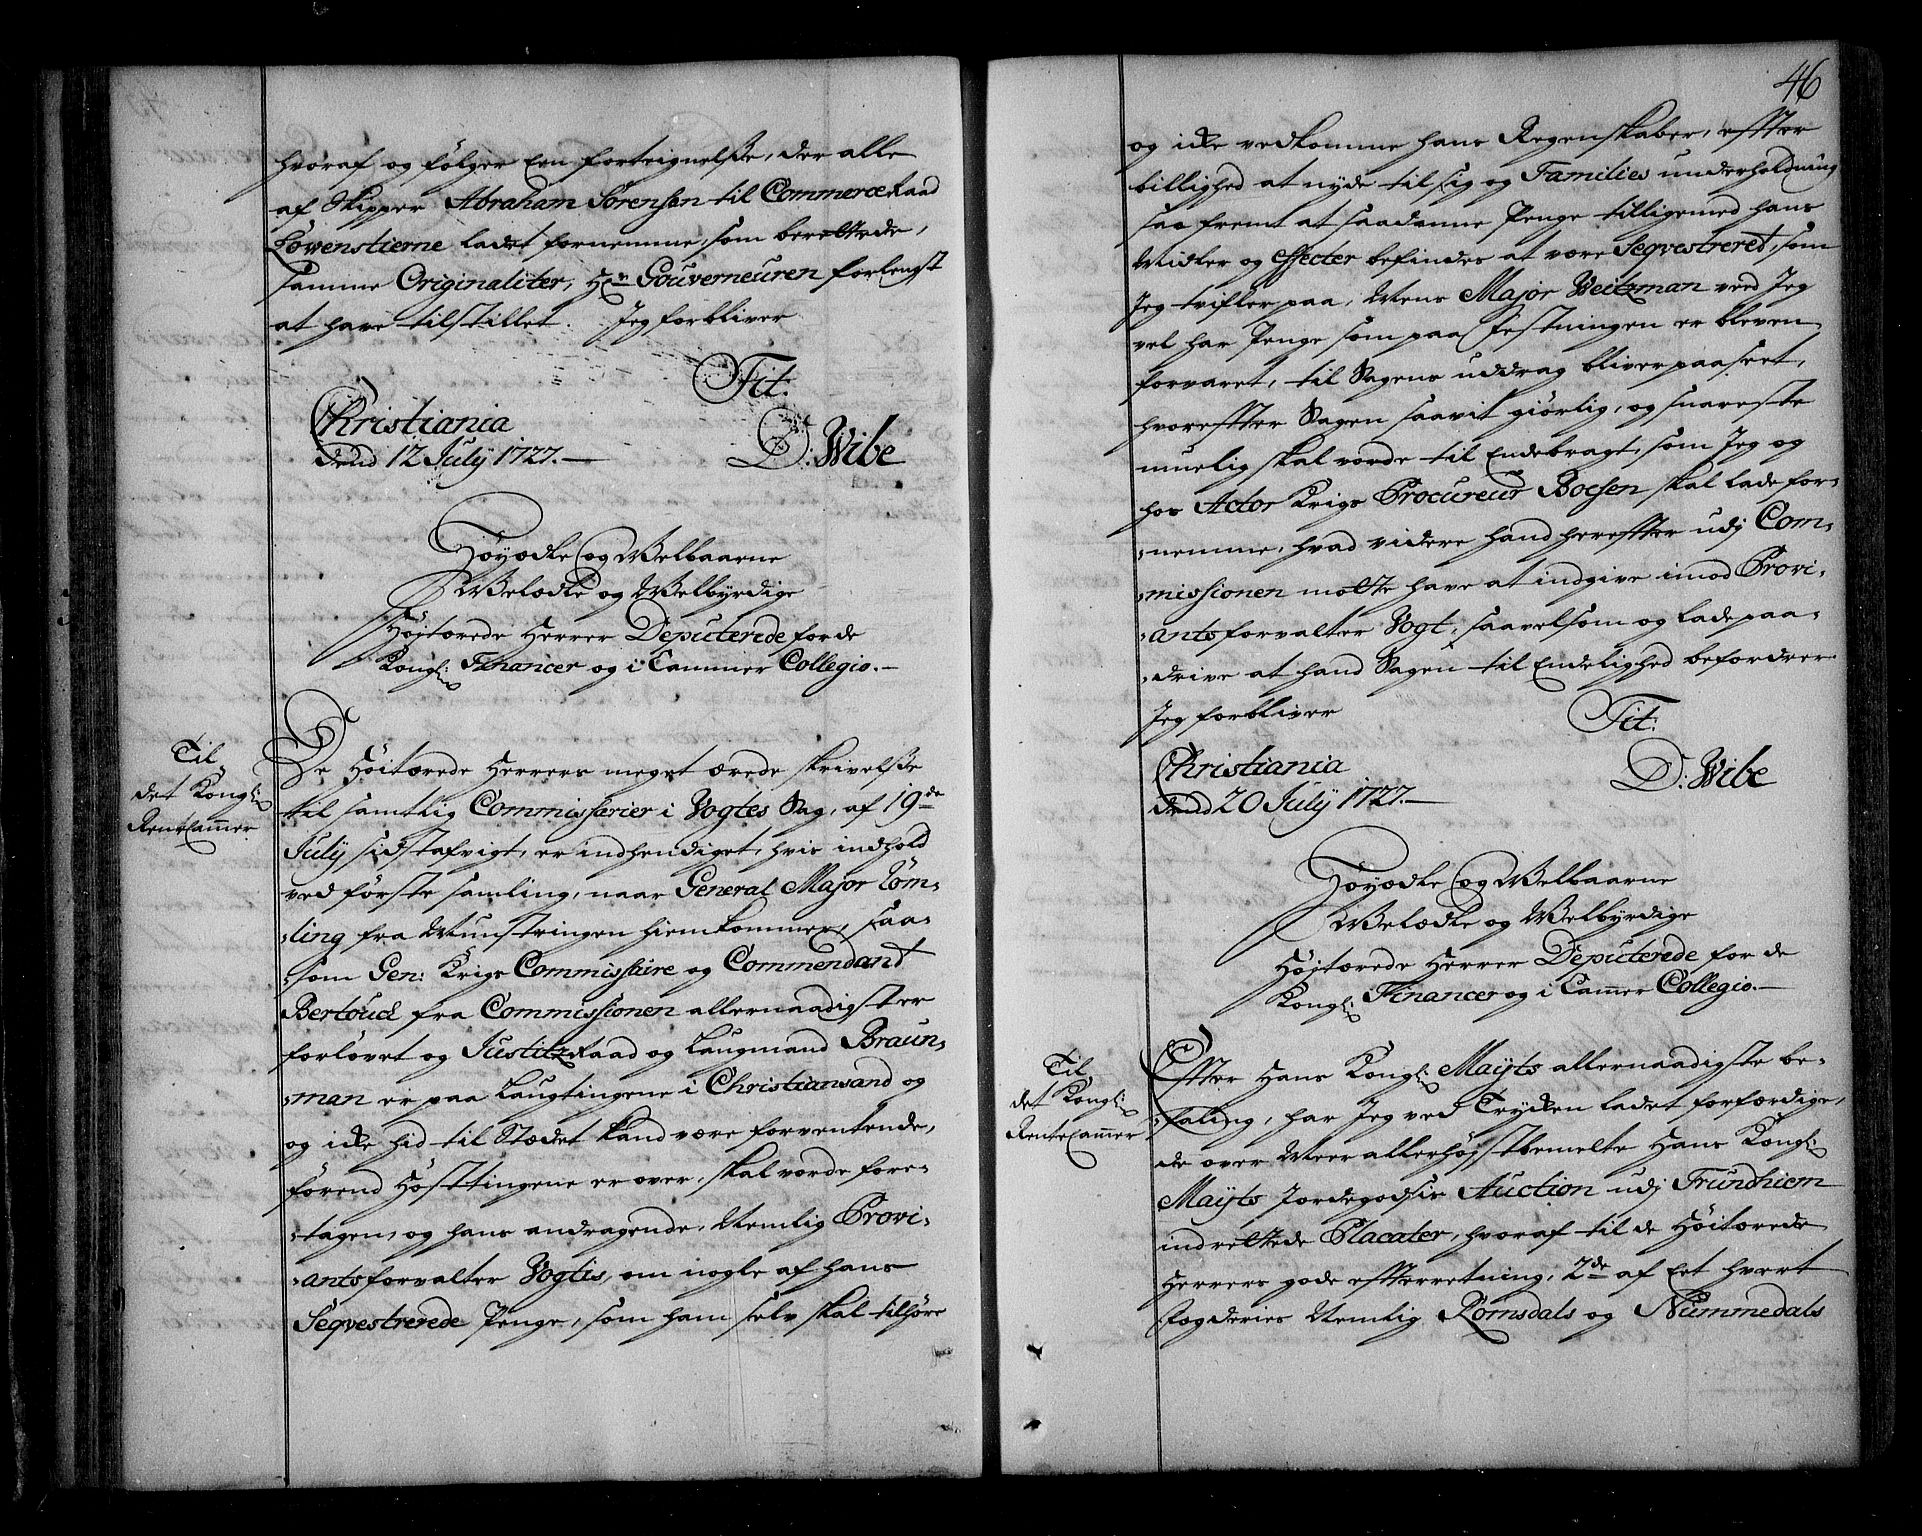 hvoraf og følger Een forteignelsse, der alle
af Skipper Abraham Sørensen til CommerceRaad
Løvenstierne ladet fornemme, som berettede,
samme Originaliter, Hrn Gouverneuren forlengst
at have tilstillet. Jeg forbliver
Tit:
Christiania
dend 12 July 1727.—
D: Wibe
Høyædle og Welbaarne
Welædle og Welbyrdige
Høitærede Herrer Deputerede for de
Kongl: Financer og i Cammer Collegio.—
Til
det Kongl:
RenteCammer
De Høitærede Herrers meget ærede skrivelsse
til samtlig Commissarier i Vogtes Sag, af 19de
July sidstafvigt, er indhendiget, hvis indhold
ved første samling, naar General Major Töm-
-ling fra Munstringen hiemkommer, saa-
-som Gen: Krigs Commissaire og Commendant
Bertouch fra Commissionen allernaadigster
forlovet og JustitzRaad og Laugmand Braun-
-man er paa Laugtingene i Christiansand og
og icke hid til Stædet kand være forventende,
førend Høsttingene er over, skal vorde fore-
-tagen, og hans andragende, Nemlig Provi-
-antsforvalter Vogtis, om nogle af hans
Seqvestrerede Penge, som ham selv skal tilhøre
46
og icke vedkomme hans Regenskaber, effter
billighed at nyde til sig og Families underholdning
saa fremt at saadanne Penge tilligemed hans
Midler og Effecter befindes at være Seqvestreret, som
Jeg tvifler paa, Mens Major Weitzman veed Jeg
vel har Penge som paa Festningen er bleven
forvaret, til Sagens uddrag bliver paaseet,
hvoreffter Sagen saavit giørlig, og snareste
muelig skal vorde til Endebragt, som Jeg og
hos Actor Krigs Procureur Boesen skal lade for-
-nemme, hvad videre hand hereffter udj Com-
-missionen motte have at indgive imod Provi-
-antsforvalter Vogt, saavelsom og lade paa-
-drive at hand Sagen til Endelighed befordrer
Jeg forbliver
Tit:
Christiania
dend 20 July 1727.—
D: Wibe
Høyædle og Welbaarne
Welædle og Welbyrdige
Højtærede Herrer Deputerede for de
Kongl: Financer og i Cammer Collegio.—
Til
det Kongl:
RenteCammer
Effter Hans Kongl: Mayts allernaadigste be-
-faling, har Jeg ved Trycken ladet forfærdige,
de over Meerallerhøjstbemelte Hans Kongl:
Mayts Jordegodsis Auction udj Trundhiem
indrettede Placater, hvoraf til de Høitærede
Herrers gode effterretning, 2de af Eet hvert
Fogderies Nemlig Romsdals og Nummedals